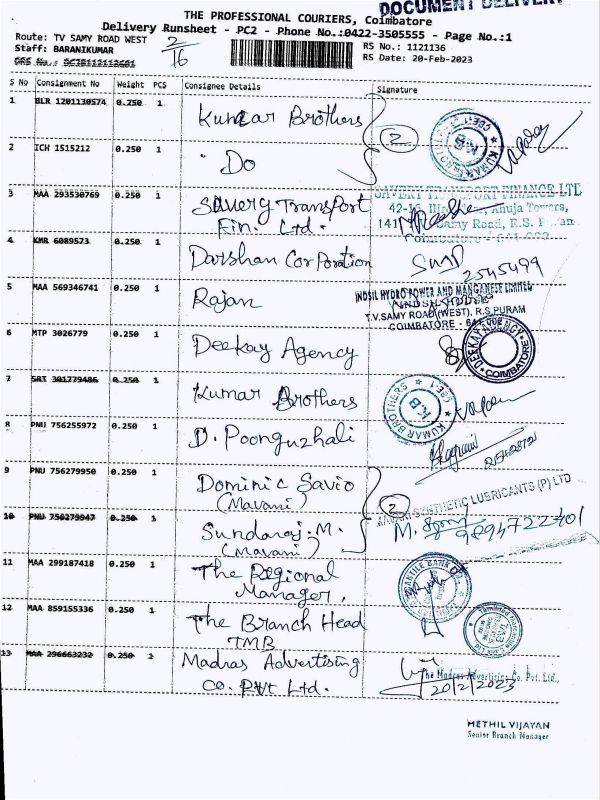 DOCUMENT DELIVERY
THE PROFESSIONAL COURIERS, Coimbatore
Delivery Runsheet - PC2 - Phone No.:0422-3505555 - Page No.:1
Route: TV SAMY ROAD WEST
RS No.: 1121136
Staff: BARANIKUMAR
RS Date: 20-Feb-2023
2/16
S No Consignment No Weight PCS Consignee Details Signature
1 BLR 1201130574 0.250 1 Kumar Brothers
KUMAR BROTHERS K.B CBE-1
2
2 ICH 1515212 0.250 1 " Do
3 MAA 293530769 0.250 1 Saverg Transport
Fin. Ltd.
SAVERY TRANSPORT FINANCE LTD
Ahuja Towers,
Samy Road, R.S.
4 KMR 6089573 0.250 1 Darshan Corporation
2545499
5 MAA 569346741 0.250 1 Rajan
INDSIL HYDRO POWER AND MANGANESE LIMITED
T.V.SAMY ROAD (WEST), R.S PURAM
COIMBATORE - 641
6 MTP 3026779 0.250 1 Deekay Agency
DEEKAY AGENCY COIMBATORE
7 SRT 301779486 0.250 1 Kumar Brothers
KUMAR BROTHERS K.B CBE-1
8 PNU 756255972 0.250 1 D. Poonguzhali
9 PNU 756279950 0.250 1 Dominic Savio
(Mavani)
2
SYNTHETIC LUBRICANTS (P) LTD
10 PNU 756279947 0.250 1 Sundaraj. M.
(Mavani)
M.
9894722401
11 MAA 299187418 0.250 1 The Regional
Manager,
12 MAA 859155336 0.250 1 The Branch Head
TMB
13 MAA 296663232 0.250 1 Madras Advertising
Co. Pvt Ltd.
The Madras Advertising Co. Pvt. Ltd.,
20/2/2023
METHIL VIJAYAN
Senior Branch Manager